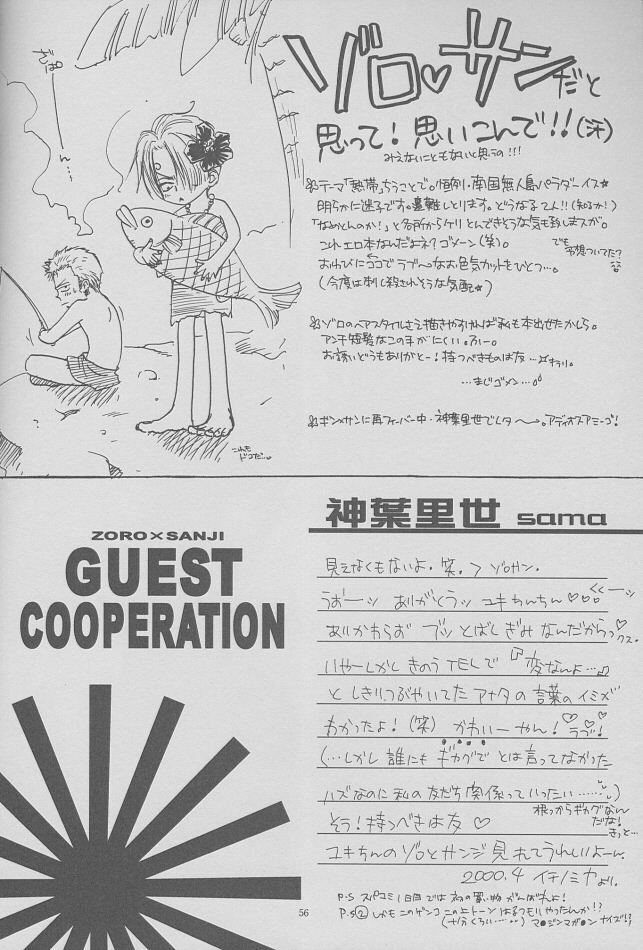 ゾロ♡サンだと
思って！思いこんで!!(汗)
みえないこともないと思うの!!!
テーマ「熱帯」ちうことで。恒例・南国無人島パラダーイス☆
明らかに迷子です。遭難しとります。どうなる二人!!(知るか!)
「なめとんのか!」と各所からケリとんできそうな気も致しますが。
これエロ本なんだよネ？ゴメーン(笑)。
でも予想ついてた？
おわびにココでラブ〜なお色気カットをひとつ…。
(今度は刺し殺されそうな気配☆)
ゾロのヘアスタイルさえ描きやすければ私も本出せたかしら。
アンチ短髪なこの手がにくい。ふー。
お誘いどうもありがとー！持つべきものは友…
…まじゴメン…
ギン×サンに再フィーバー中・神葉里世でしタ〜。アディオスアミーゴ！
これもドコだ…
ZORO×SANJI
GUEST
COOPERATION
神葉里世 sama
見えなくもないよ.笑.＞ゾロサン.
うおーッ ありがとうッ ユキちんちん♡♡♡
くくーッ
あいかわらず ブッとばしぎみなんだからっ
クス.
いやーしかしきのうTELで『変なんよ…』
としきりにつぶやいてたアナタの言葉のイミが
わかったよ！(笑) かわいーやん！ラブ！
(…しかし誰にもギャグでとは言ってなかった
ハズなのに私の友だち関係っていったい……)
根っからギャグなんだな！きっと…
そう！持つべきは友♡
ユキちんのゾロとサンジ見れてうれしいよーん.
2000.4 イチノミヤより.
P.S スパコミ1日目では お買い物がんばれよ！
P.S② しかもこのゲンコ この上トーンはるつもりやったんか!?
(十分くろい…) マ●ジンマガ●ン ナイズ!?
56